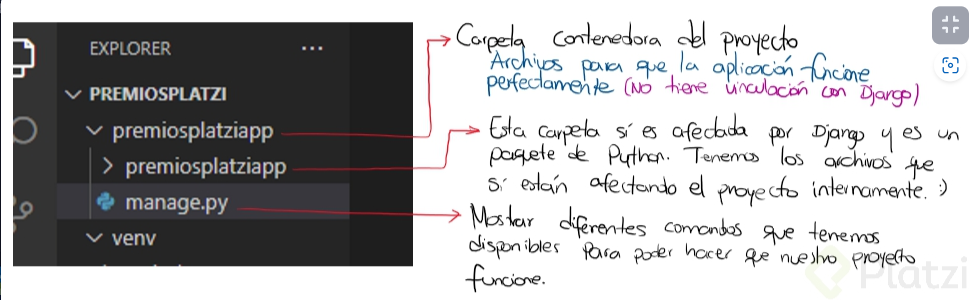 EXPLORER ...
PREMIOSPLATZI
premiosplatziapp
premiosplatziapp
manage.py
venv
Carpeta contenedora del proyecto
Archivos para que la aplicación funcione
perfectamente (No tiene vinculación con Django)
Esta carpeta sí es afectada por Django y es un
paquete de Python. Tenemos los archivos que
sí están afectando el proyecto internamente. :)
Mostrar diferentes comandos que tenemos
disponibles para poder hacer que nuestro proyecto
funcione.
Platzi